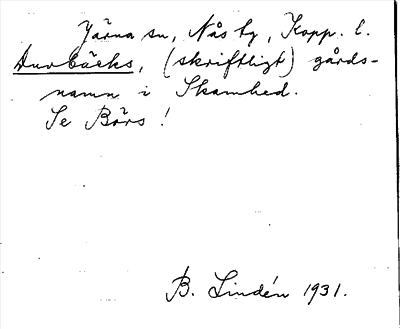 Järna sn, Nås tg, Kopp. l.
Durbäcks, (skriftligt) gårds-
namn i Skamhed.
Se Börs!
B. Lindén 1931.